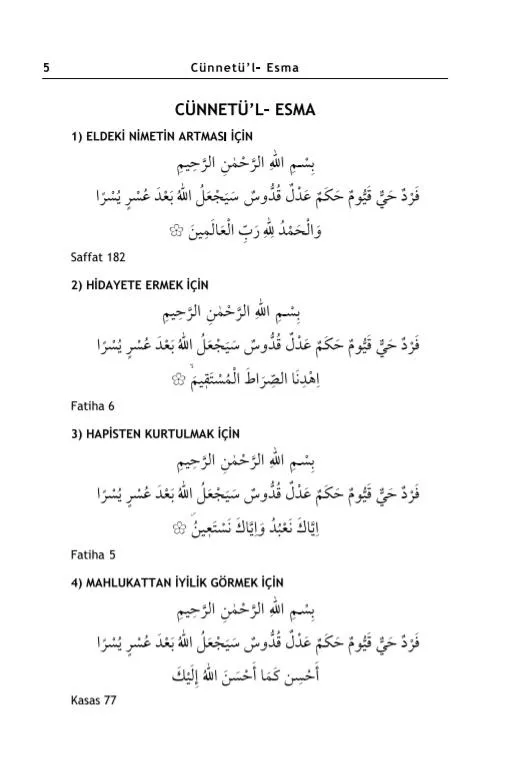 5 Cünnetü’l- Esma
CÜNNETÜ’L- ESMA
1) ELDEKİ NİMETİN ARTMASI İÇİN
بِسْمِ اللهِ الرَّحْمٰنِ الرَّحِيمِ
فَرْدٌ حَيٌّ قَيُّومٌ حَكَمٌ عَدْلٌ قُدُّوسٌ سَيَجْعَلُ اللهُ بَعْدَ عُسْرٍ يُسْرًا
وَالْحَمْدُ لِلّٰهِ رَبِّ الْعَالَمِينَ ۞
Saffat 182
2) HİDAYETE ERMEK İÇİN
بِسْمِ اللهِ الرَّحْمٰنِ الرَّحِيمِ
فَرْدٌ حَيٌّ قَيُّومٌ حَكَمٌ عَدْلٌ قُدُّوسٌ سَيَجْعَلُ اللهُ بَعْدَ عُسْرٍ يُسْرًا
اِهْدِنَا الصِّرَاطَ الْمُسْتَقِيمَۙ ۞
Fatiha 6
3) HAPİSTEN KURTULMAK İÇİN
بِسْمِ اللهِ الرَّحْمٰنِ الرَّحِيمِ
فَرْدٌ حَيٌّ قَيُّومٌ حَكَمٌ عَدْلٌ قُدُّوسٌ سَيَجْعَلُ اللهُ بَعْدَ عُسْرٍ يُسْرًا
اِيَّاكَ نَعْبُدُ وَاِيَّاكَ نَسْتَعِينُۜ ۞
Fatiha 5
4) MAHLUKATTAN İYİLİK GÖRMEK İÇİN
بِسْمِ اللهِ الرَّحْمٰنِ الرَّحِيمِ
فَرْدٌ حَيٌّ قَيُّومٌ حَكَمٌ عَدْلٌ قُدُّوسٌ سَيَجْعَلُ اللهُ بَعْدَ عُسْرٍ يُسْرًا
أَحْسِن كَمَا أَحْسَنَ اللهُ إِلَيْكَ
Kasas 77